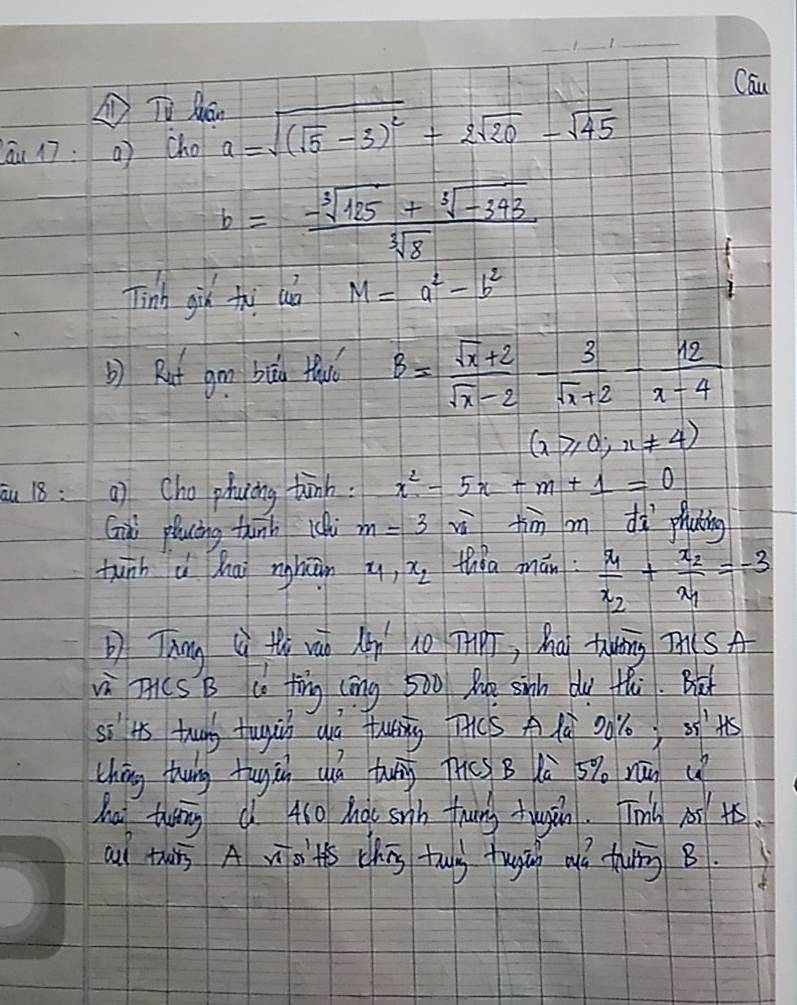 Câu
II Tự luận
Câu 17: a) Cho a = √(√5 - 3)² + 2√20 - √45
b = (-∛125 + ∛-343) / ∛8
Tính giá trị của M = a² - b²
b) Rút gọn biểu thức B = (√x + 2)/(√x - 2) - 3/(√x + 2) - 12/(x - 4)
(x ≥ 0; x ≠ 4)
âu 18: a) Cho phương trình: x² - 5x + m + 1 = 0
Giải phương trình khi m = 3 và tìm m để phương
trình có hai nghiệm x₁, x₂ thỏa mãn: x₁/x₂ + x₂/x₁ = -3
b) Trong kì thi vào lớp 10 THPT, hai trường THCS A
và THCS B có tổng cộng 500 học sinh dự thi. Biết
số HS trúng tuyển của trường THCS A là 90%; số HS
không trúng tuyển của trường THCS B là 5% nên cả
hai trường có 460 học sinh trúng tuyển. Tính số HS
của trường A và số HS không trúng tuyển của trường B.